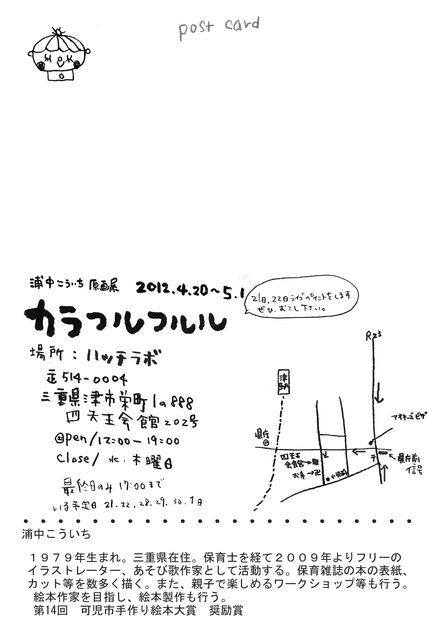 post card
浦中こういち 原画展 2012.4.20〜5.1
21日、22日ライブペイントをします
ぜひ、おこし下さい。
カラフルフルル
場所：ハッチラボ
〒514-0004
三重県津市栄町1の888
四天王会館202号
open/12:00-19:00
close/水・木曜日
最終日のみ17:00まで
いる予定日 21.22.28.29.30.1日
R23
津駅
県庁
四天王
会館
お寺
県庁前
信号
浦中こういち
１９７９年生まれ。三重県在住。保育士を経て２００９年よりフリーの
イラストレーター、あそび歌作家として活動する。保育雑誌の本の表紙、
カット等を数多く描く。また、親子で楽しめるワークショップ等も行う。
絵本作家を目指し、絵本製作も行う。
第14回 可児市手作り絵本大賞 奨励賞